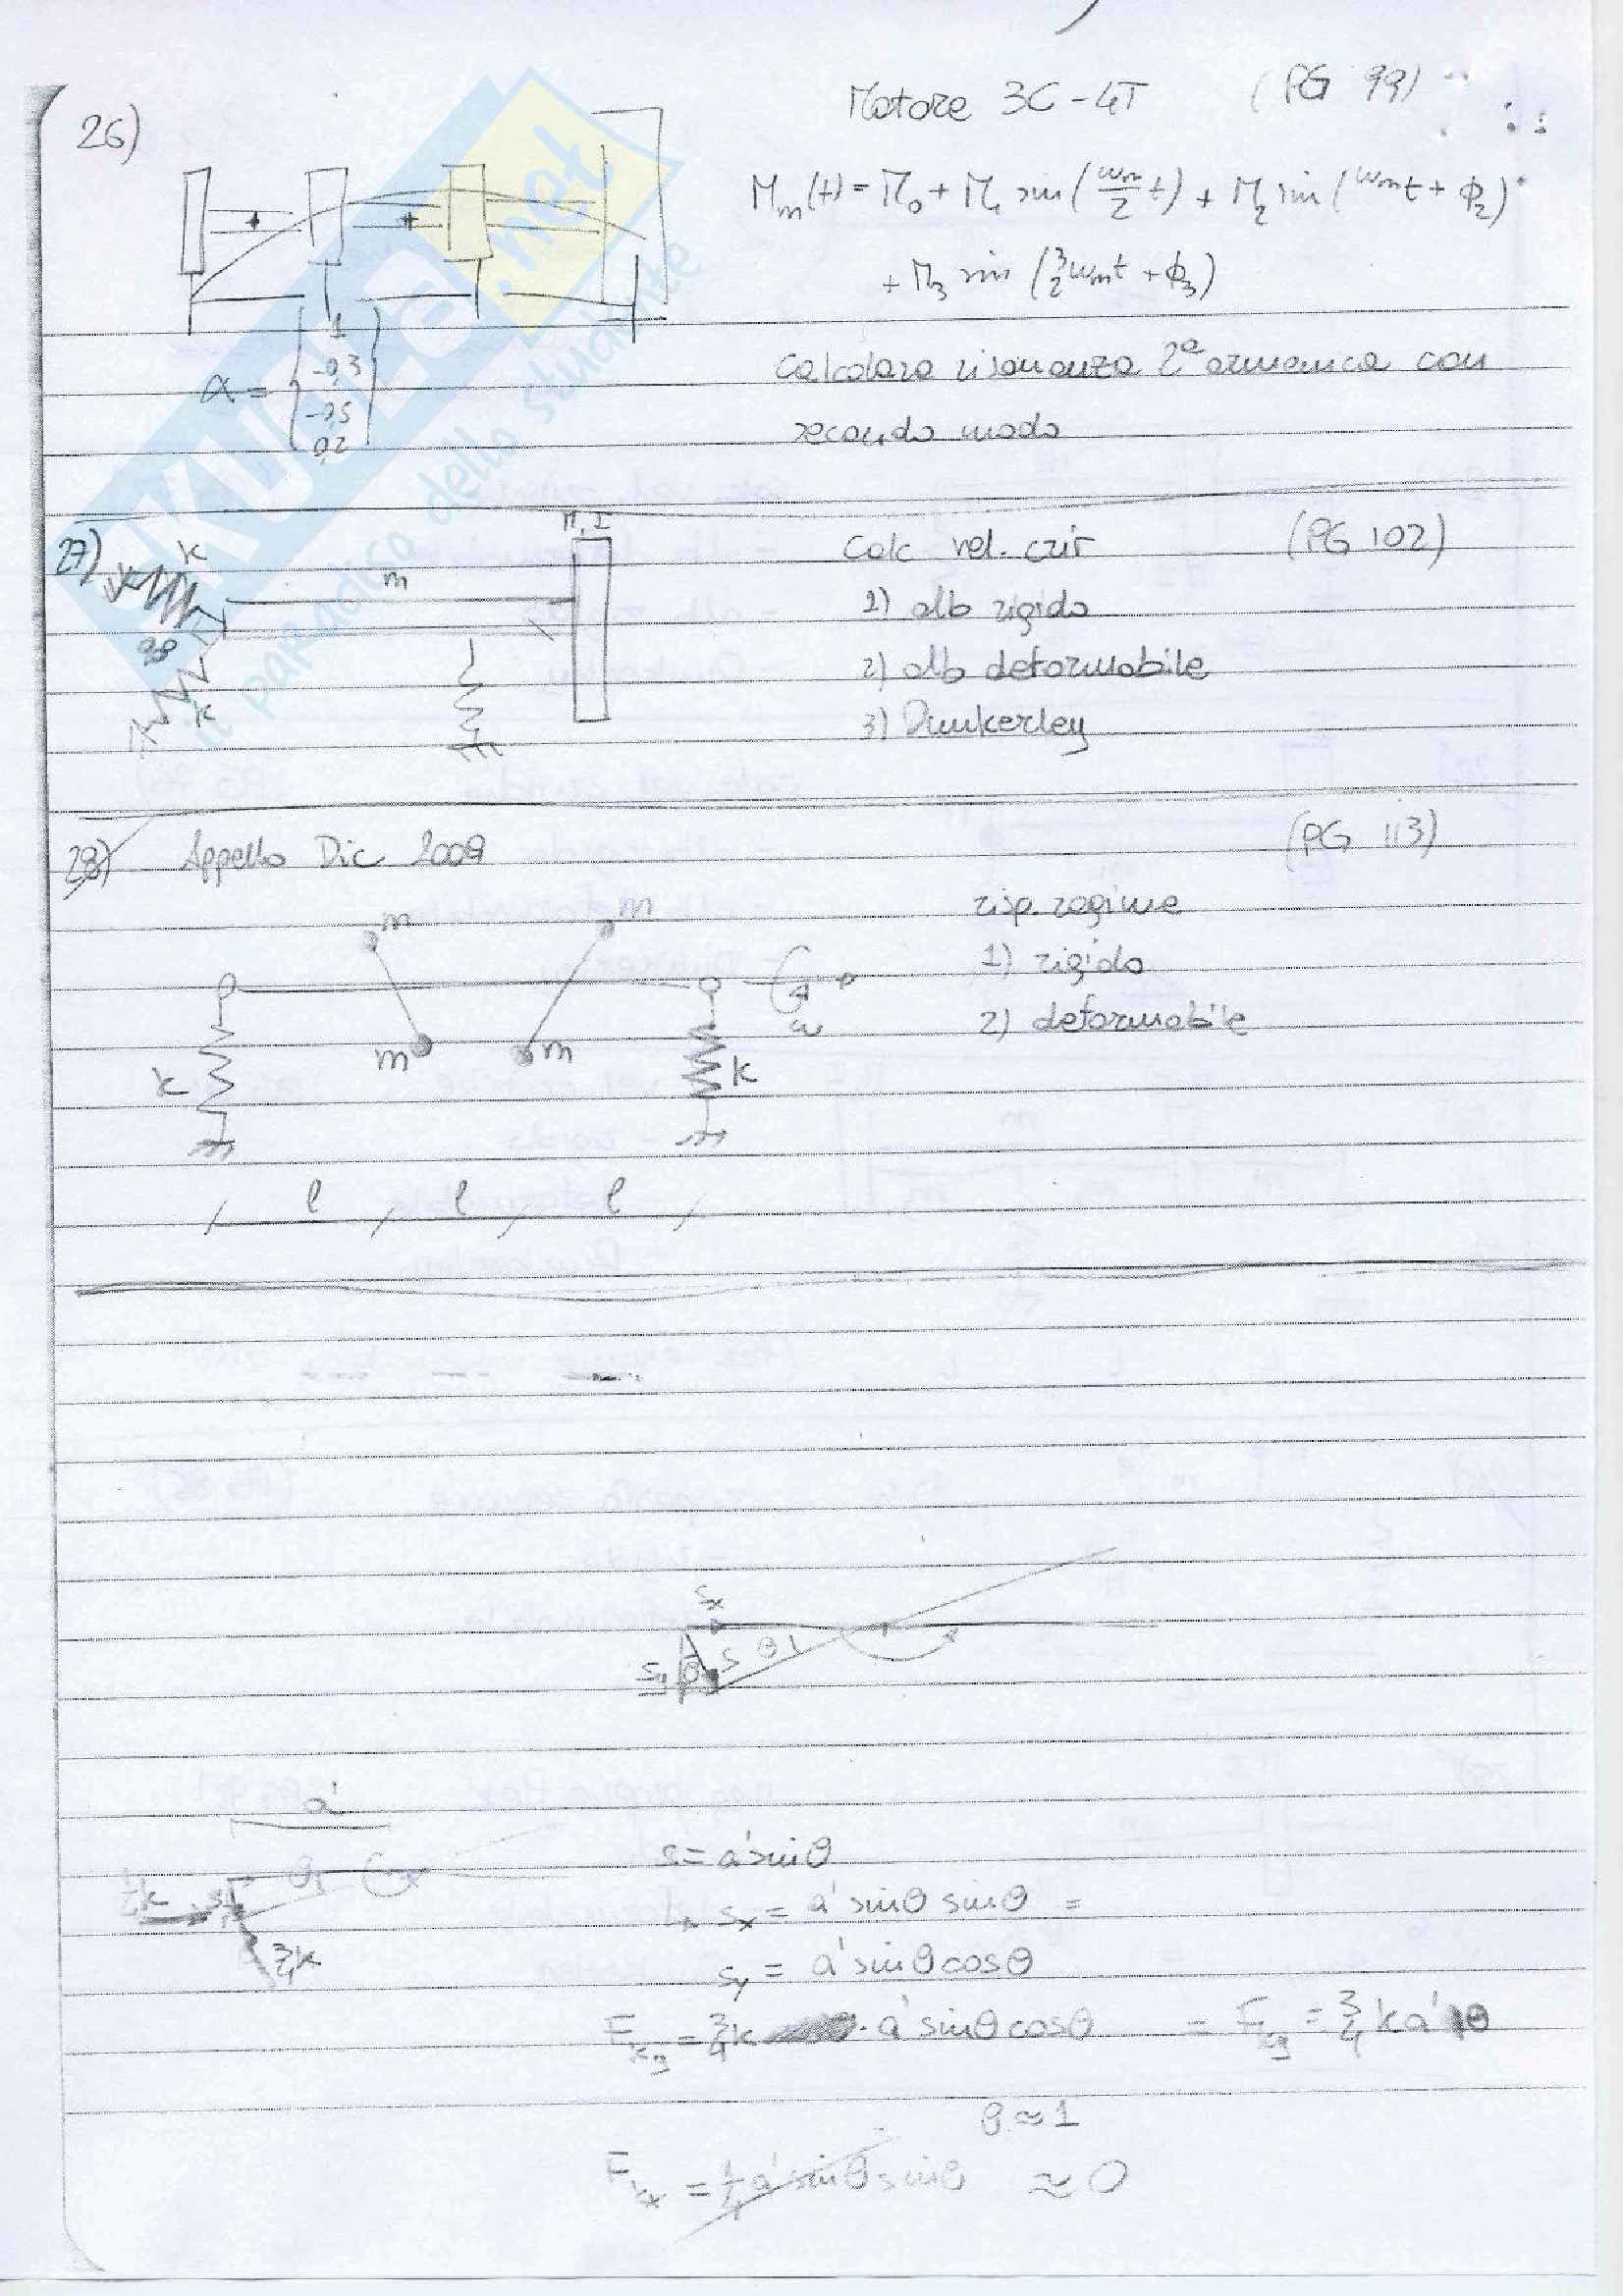 26)
Motore 3C-4T (PG 99)
Mm(t) = M0 + M1 sin(ωm/2 t) + M2 sin(ωmt + ϕ2)
+ M3 sin(3/2 ωmt + ϕ3)
α = { 1
-0,3
-0,5
0,2 }
Calcolare risonanza 2ª armonica con
secondo modo
27)
k
m
M, I
k
Calc vel. crit (PG 102)
1) alb rigido
2) alb deformabile
3) Dunkerley
28) Appello Dic 2009 (PG 113)
m
m
m
m
k
k
ω
risp. regime
1) rigido
2) deformabile
l l l
sx
sy
s
θ
a'
θ
3/4k
s = a' sinθ
sx = a' sinθ sinθ =
sy = a' sinθ cosθ
Fky = 3/4k · a' sinθ cosθ = Fky = 3/4 k a' θ
θ ≈ 1
Fkx = 1/4 a' sinθ sinθ ≈ 0
SKUOLA.net
il paradiso dello studente